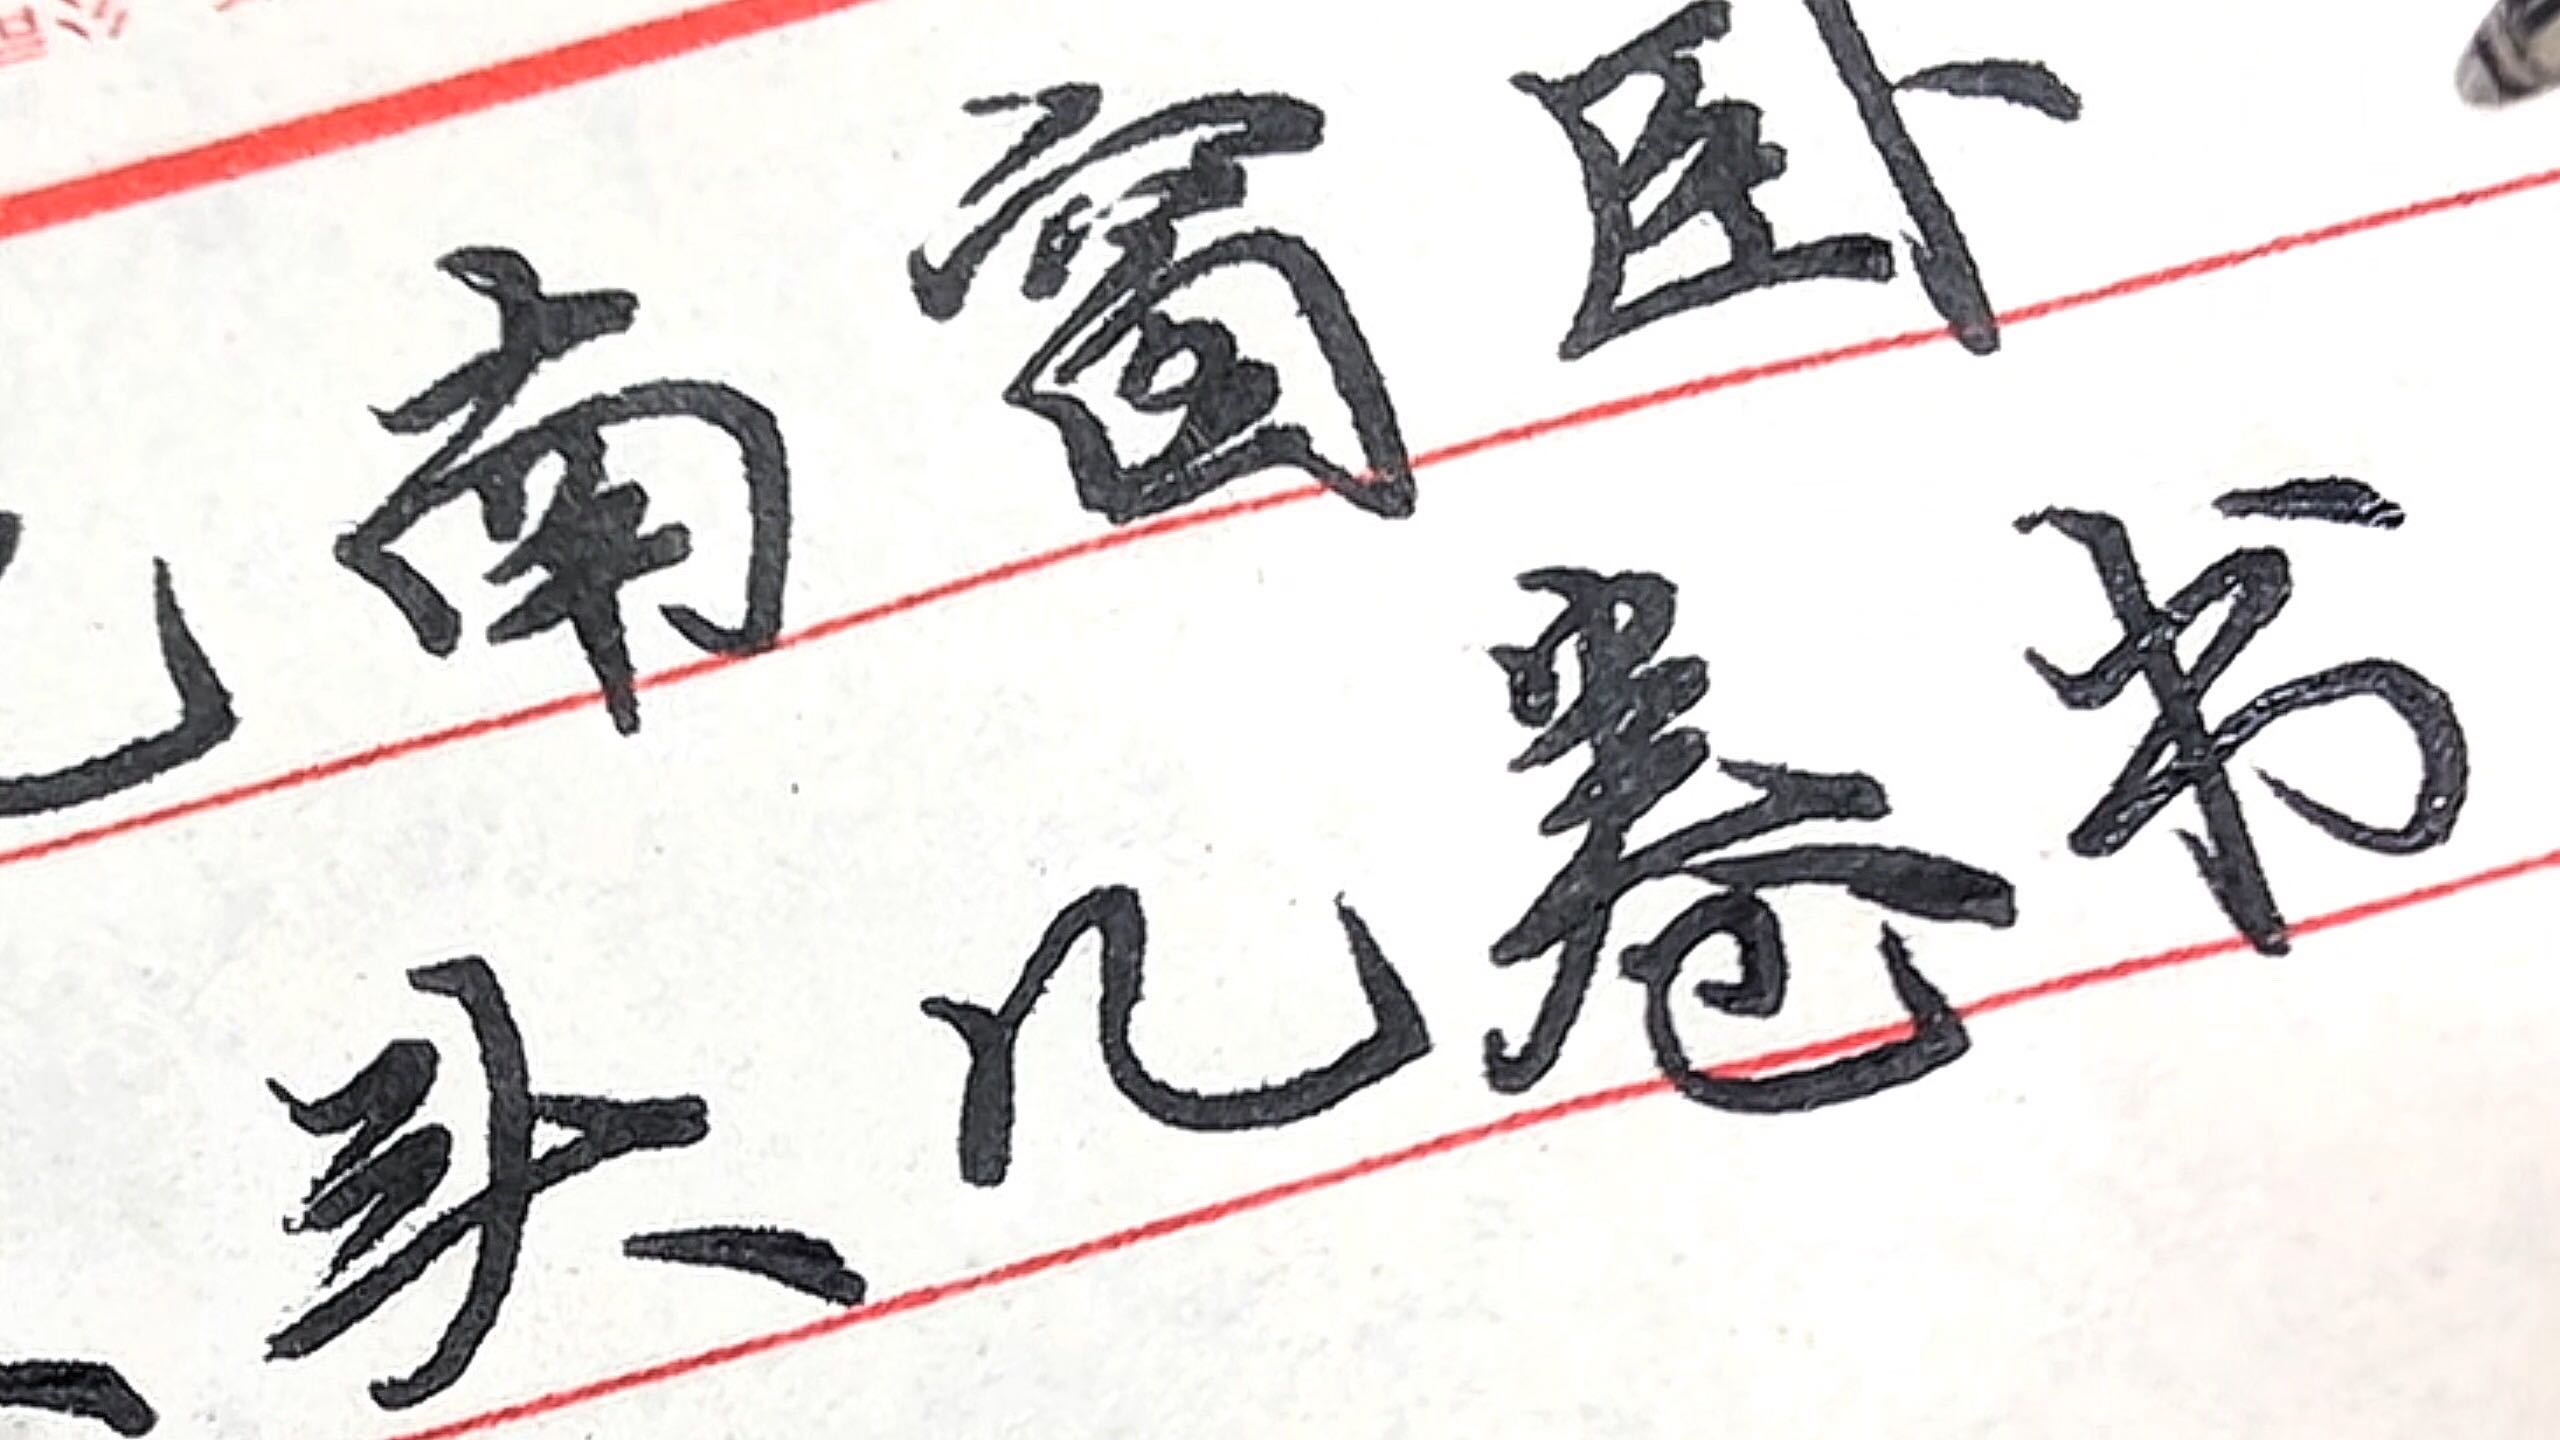 南窗卧
头几卷书